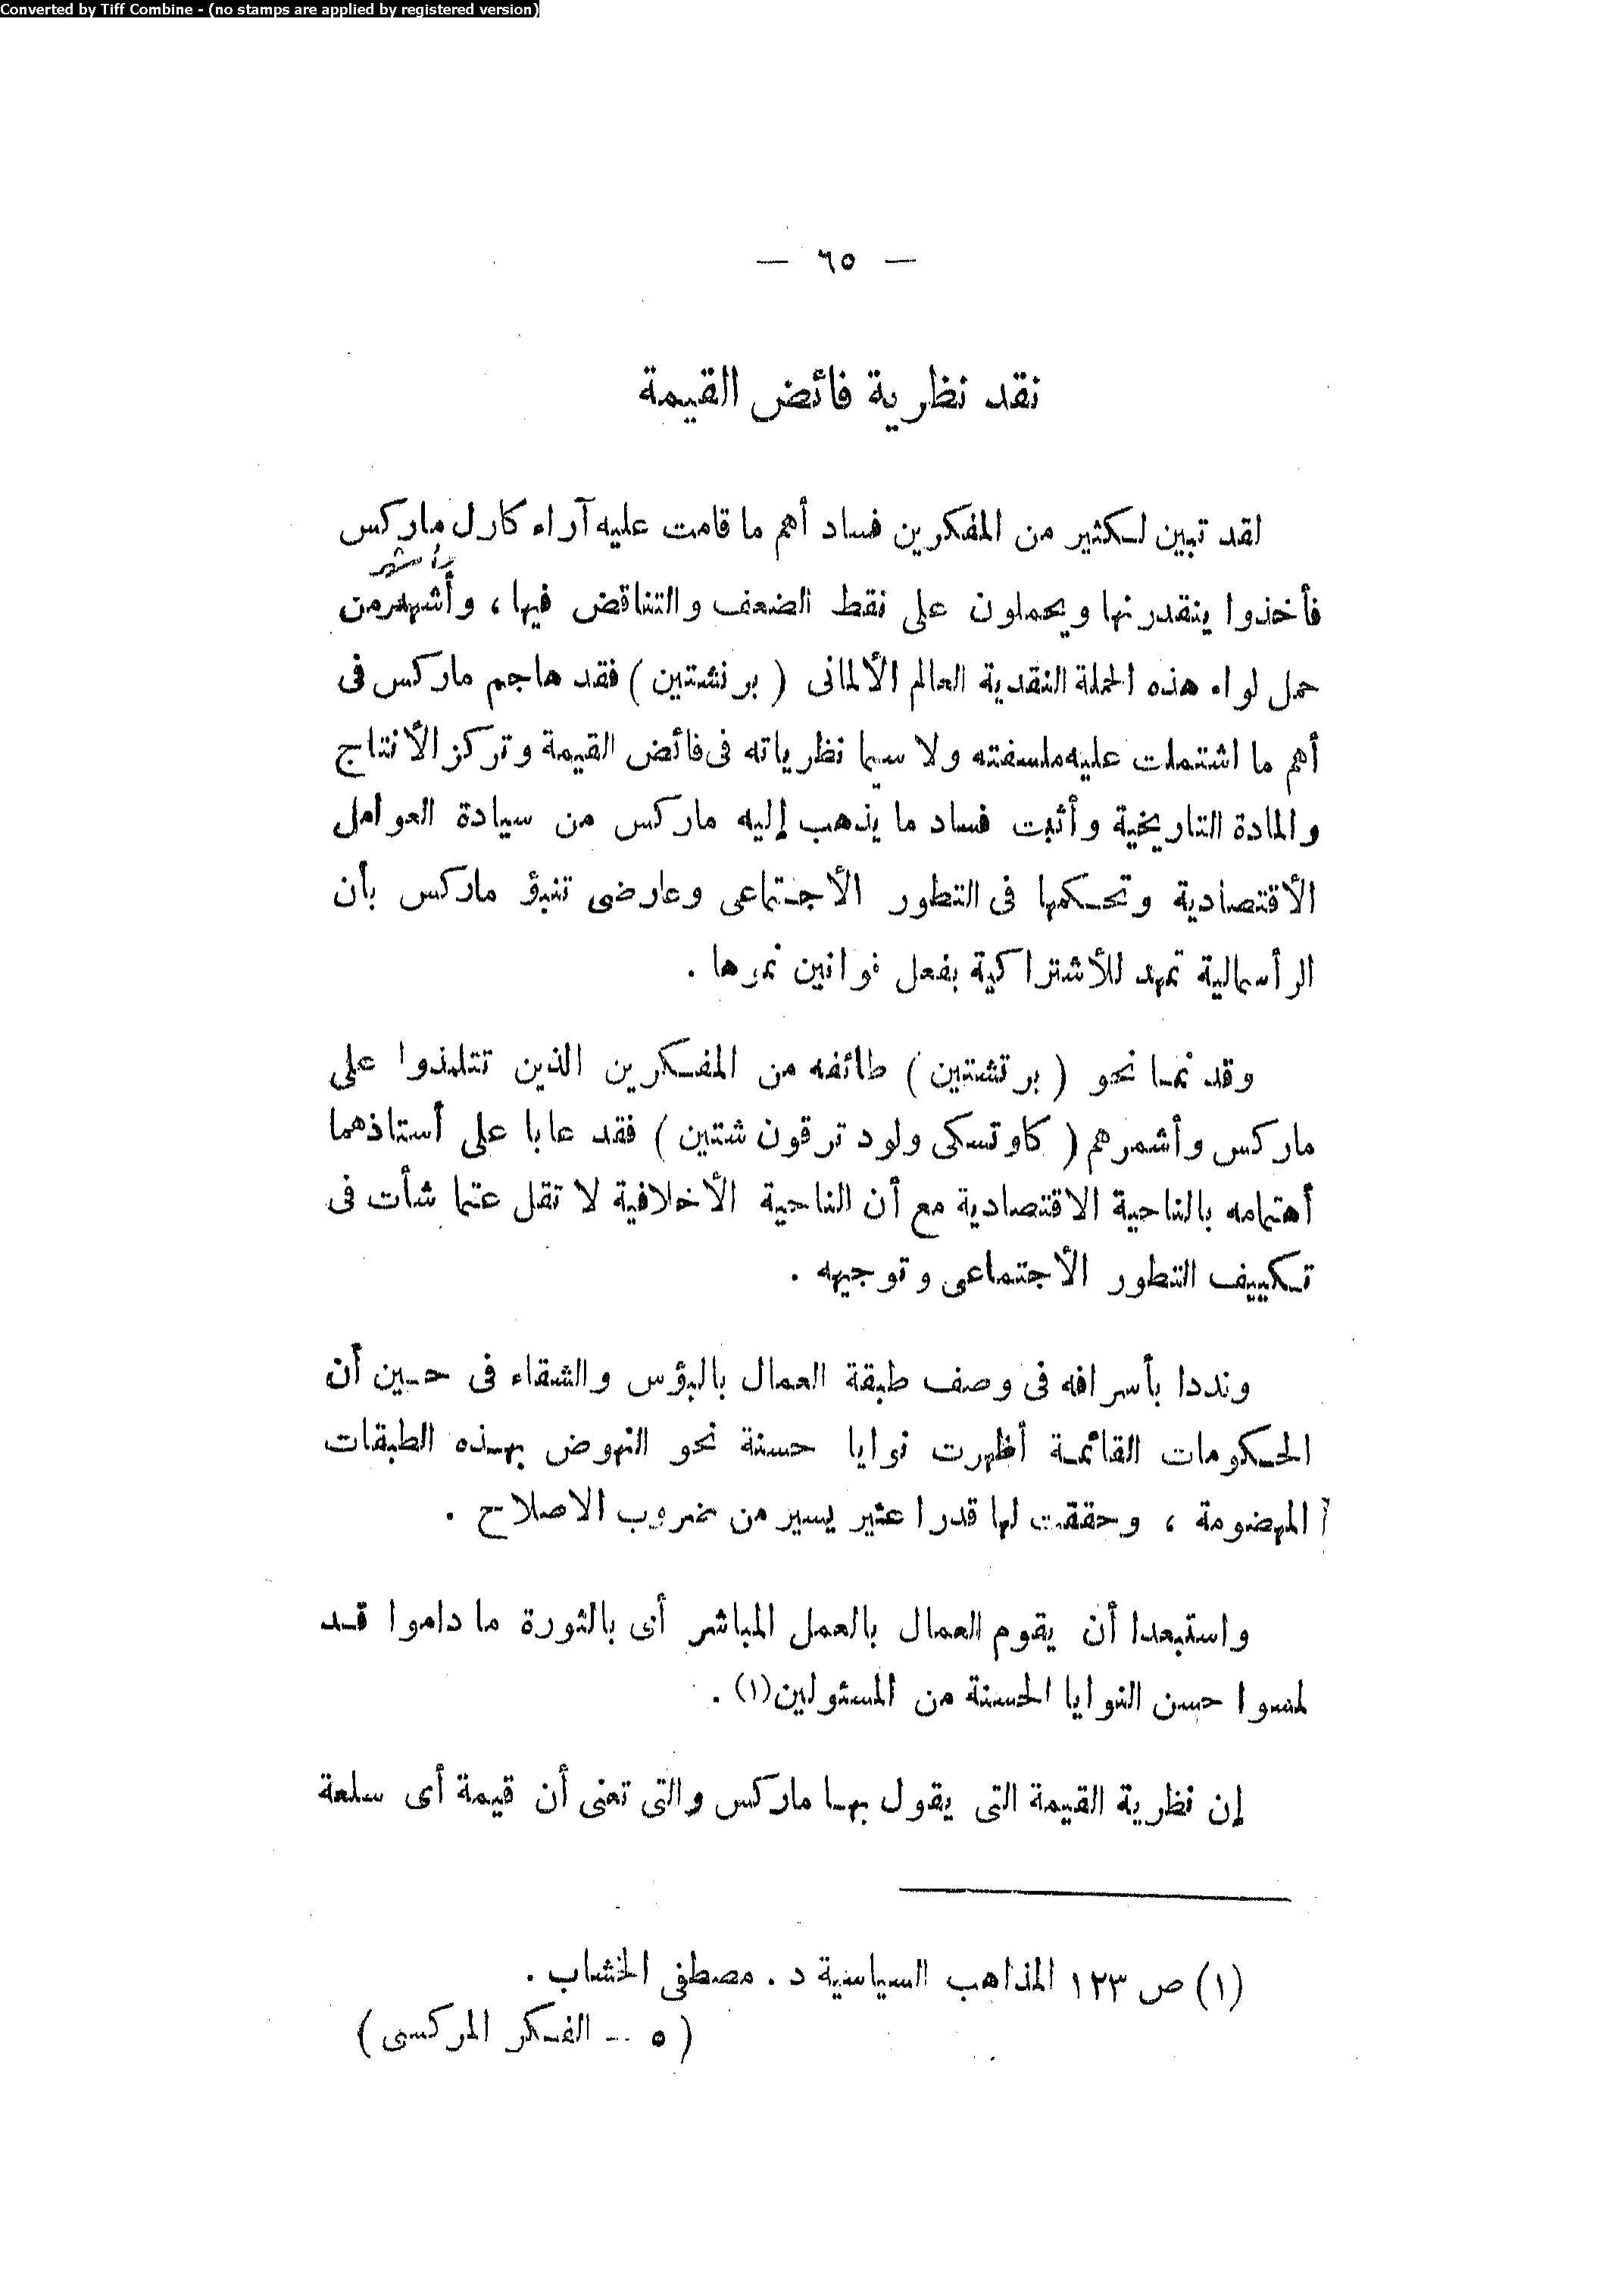 Converted by Tiff Combine - (no stamps are applied by registered version)
— ٦٥ —
نقد نظرية فائض القيمة
لقد تبين لكثير من المفكرين فساد أهم ما قامت عليه آراء كارل ماركس
فأخذوا ينقدرنها ويحملون على نقط الضعف والتناقض فيها، وأشهر من
حمل لواء هذه الحملة النقدية العالم الألمانى ( برنشتين ) فقد هاجم ماركس فى
أهم ما اشتملت عليه ملسفته ولا سيما نظرياته فى فائض القيمة وتركز الأنتاج
والمادة التاريخية وأثبت فساد ما يذهب إليه ماركس من سيادة العوامل
الأقتصادية وتحكمها فى التطور الأجتماعى وعارضى تنبؤ ماركس بأن
الرأسمالية تمهد للأشتراكية بفعل قوانين نمرها .
وقد نما نحو ( برتشتين ) طائفه من المفكرين الذين تتلمذوا على
ماركس وأشمرهم ( كاوتسكى ولود ترقون شتين ) فقد عابا على أستاذهما
أهتمامه بالناحية الاقتصادية مع أن الناحية الأخلافية لا تقل عتما شأت فى
تكييف التطور الأجتماعى وتوجيهه .
ونددا بأسرافه فى وصف طبقة العمال بالبؤس والشقاء فى حين أن
الحكومات القائمة أظهرت نوايا حسنة نحو النهوض بهذه الطبقات
المهضومة ، وحققت لها قدرا عثير يسير من ضروب الاصلاح .
واستبعدا أن يقوم العمال بالعمل المباشر أى بالثورة ما داموا قد
لمسوا حسن النوايا الحسنة من المسئولين(١) .
إن نظرية القيمة التى يقول بها ماركس والتى تعنى أن قيمة أى سلعة
(١) ص ١٢٣ المذاهب السياسية د . مصطفى الخشاب .
( ٥ -- الفكر المركسى )